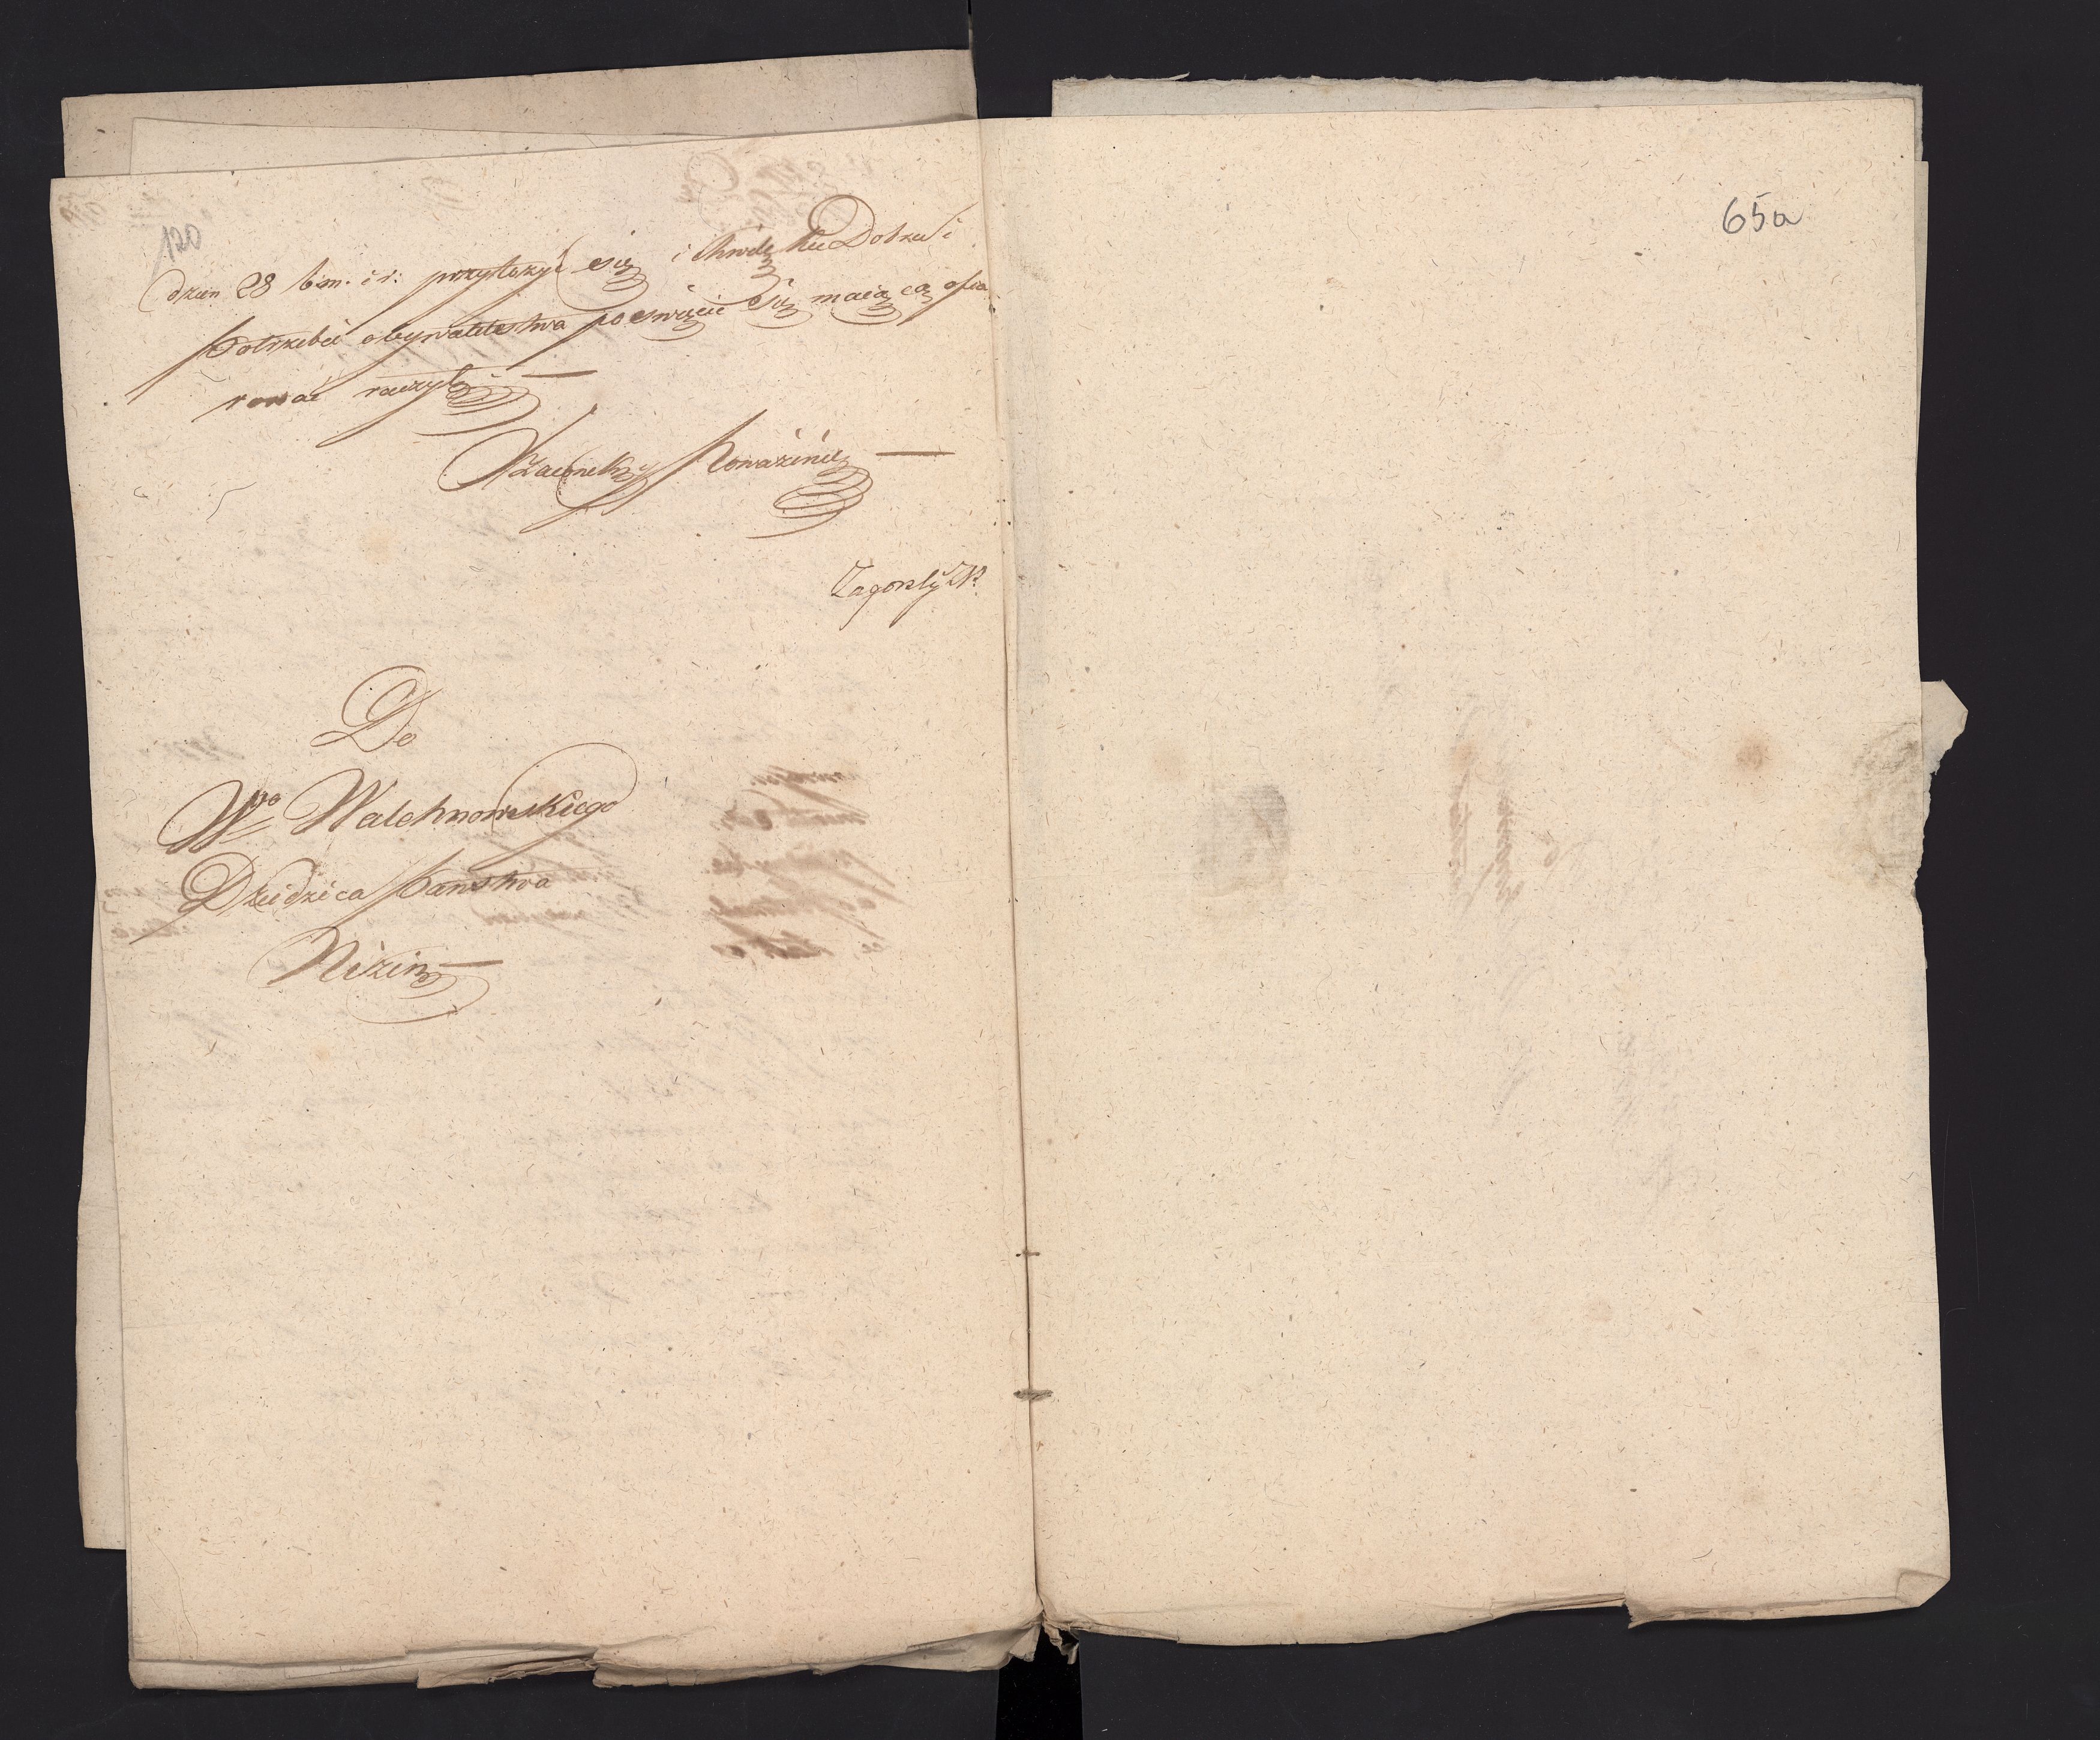 120
dzien 28 b. m. i r. przyłożyć się i chwilę ku Dobru i
Potrzebie obywatelstwa poswięcić się maiącą ofia
rować raczył.
Szacunek Poważenie
Zagorsky
Do
Wgo Walchnowskiego
Dziedzica Państwa
Nizin
65a